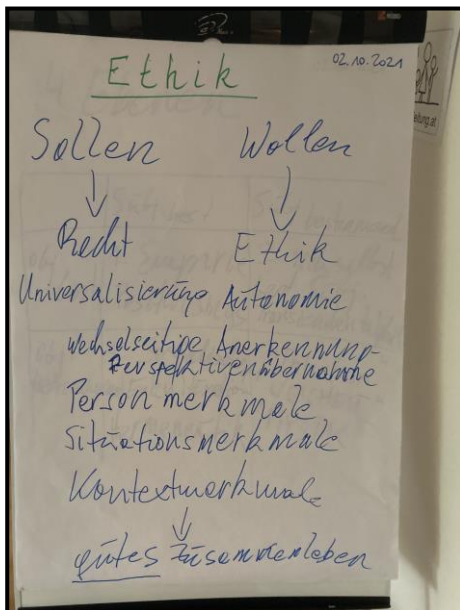 02.10.2021
Ethik
Sollen Wollen
Recht Ethik
Universalisierung Autonomie
wechselseitige Anerkennung-
Perspektivenübernahme
Personmerkmale
Situationsmerkmale
Kontextmerkmale
gutes Zusammenleben
eitung.at